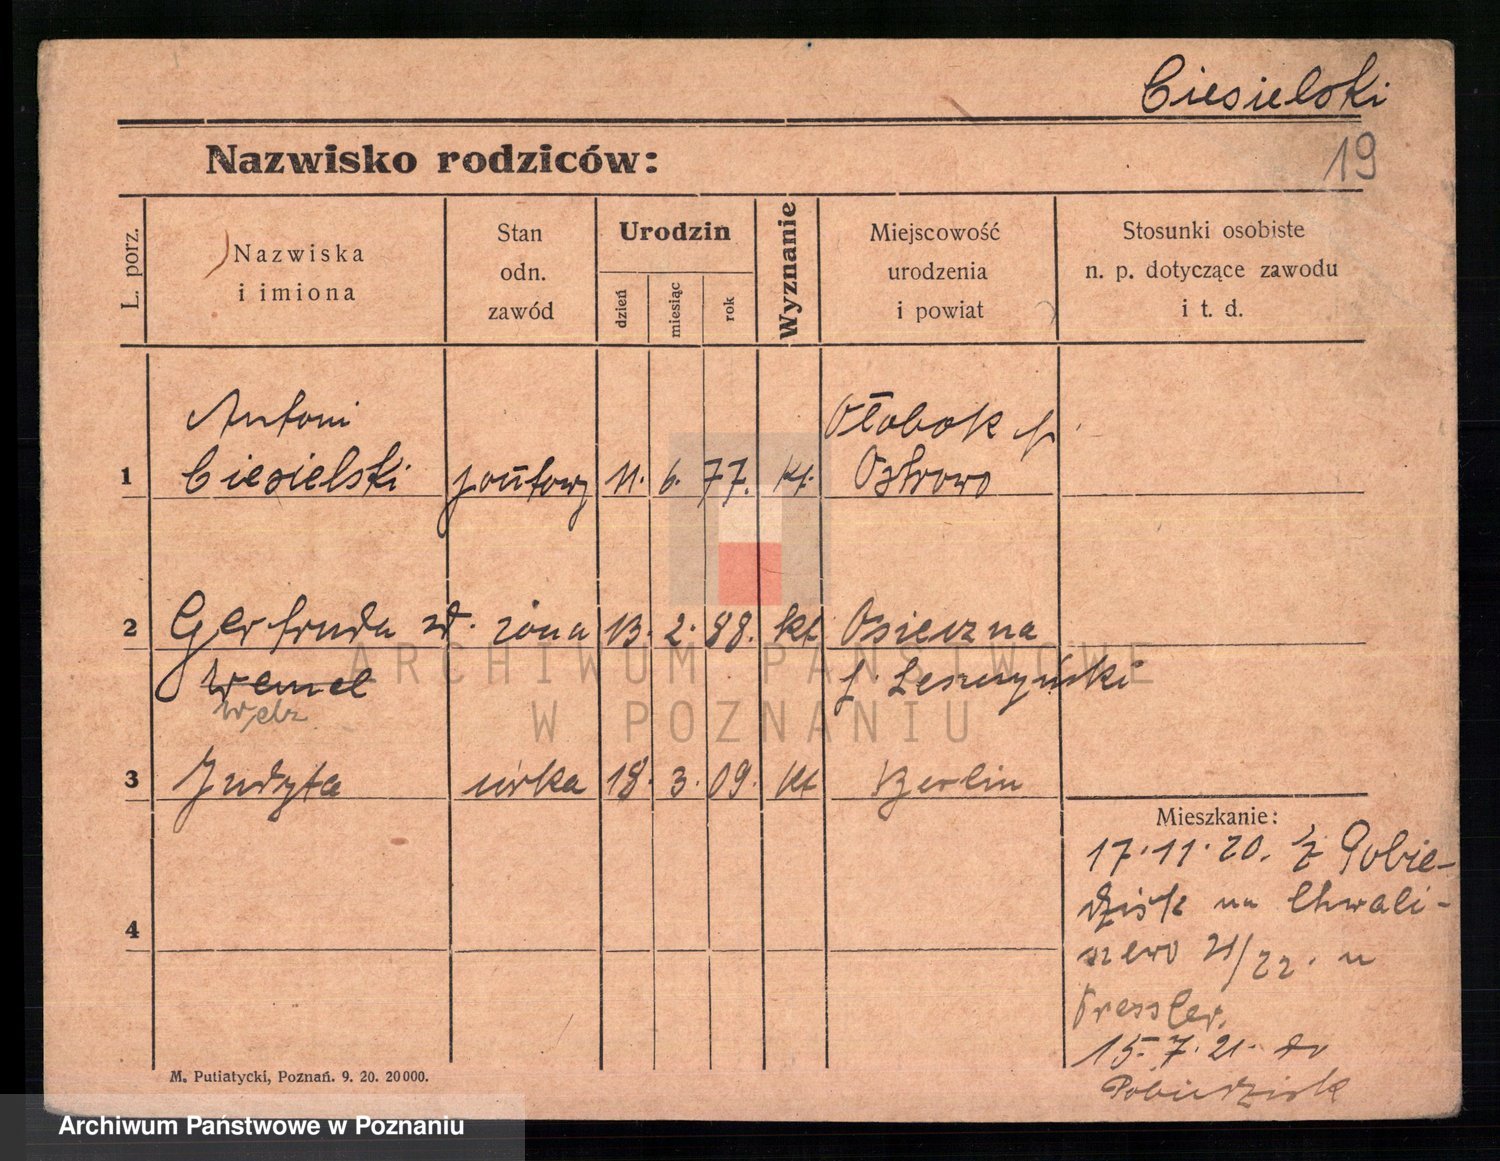 Ciesielski
19
Nazwisko rodziców:
L. porz.
Nazwiska
i imiona
Stan
odn.
zawód
Urodzin
dzień
miesiąc
rok
Wyznanie
Miejscowość
urodzenia
i powiat
Stosunki osobiste
n. p. dotyczące zawodu
i t. d.
Antoni
Ołobok p
1 Ciesielski 11. 6. 77. kt. Ostrowo
2 Gertruda zd. żona 13. 2. 88. kt Osieczna
Wemel
p. Leszczyński
3 Judyta córka 18. 3. 09. kt Berlin
Mieszkanie:
17.11.20. z Pobie-
dzisk na Chwali-
4
szewo 21/22. u
Dressler.
15.7.21. do
Pobiedzisk
M. Putiatycki, Poznań. 9. 20. 20000.
ARCHIWUM PAŃSTWOWE
W POZNANIU
Archiwum Państwowe w Poznaniu